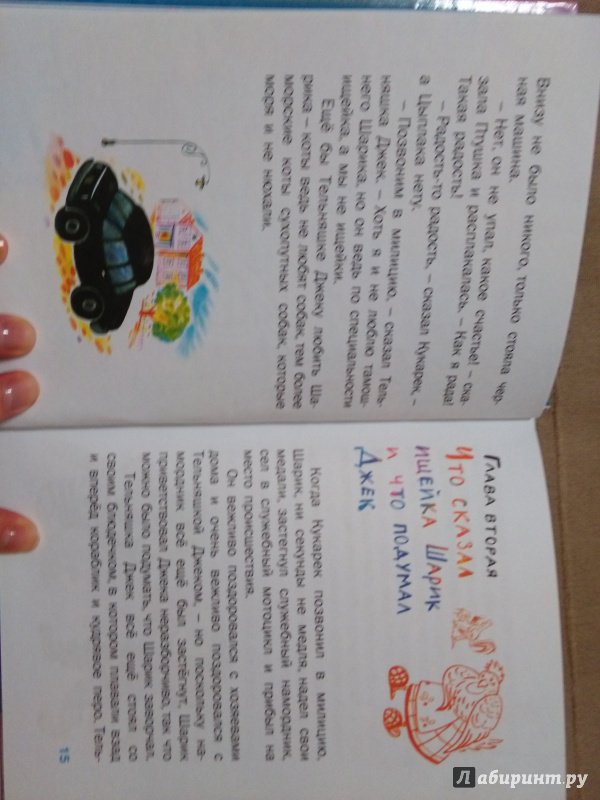 Внизу не было никого, только стояла чер-
ная машина.
– Нет, он не упал, какое счастье! – ска-
зала Птушка и расплакалась. – Как я рада!
Такая радость!
– Радость-то радость, – сказал Кукарек, –
а Цыплака нету.
– Позвоним в милицию, – сказал Тель-
няшка Джек. – Хоть я и не люблю тамош-
него Шарика, но он ведь по специальности
ищейка, а мы не ищейки.
Ещё бы Тельняшке Джеку любить Ша-
рика – коты ведь не любят собак, тем более
морские коты сухопутных собак, которые
моря и не нюхали.
Глава вторая
Что сказал
ищейка Шарик
и что подумал
Джек
Когда Кукарек позвонил в милицию,
Шарик, ни секунды не медля, надел свои
медали, застегнул служебный намордник,
сел в служебный мотоцикл и прибыл на
место происшествия.
Он вежливо поздоровался с хозяевами
дома и очень вежливо поздоровался с
Тельняшкой Джеком, – но поскольку на-
мордник всё ещё был застёгнут, Шарик
приветствовал Джека неразборчиво, так что
можно было подумать, что Шарик заворчал.
Тельняшка Джек всё ещё стоял со
своим блюдечком, в котором плавали взад
и вперёд кораблик и кудрявое перо. Тель-
15
Лабиринт.ру